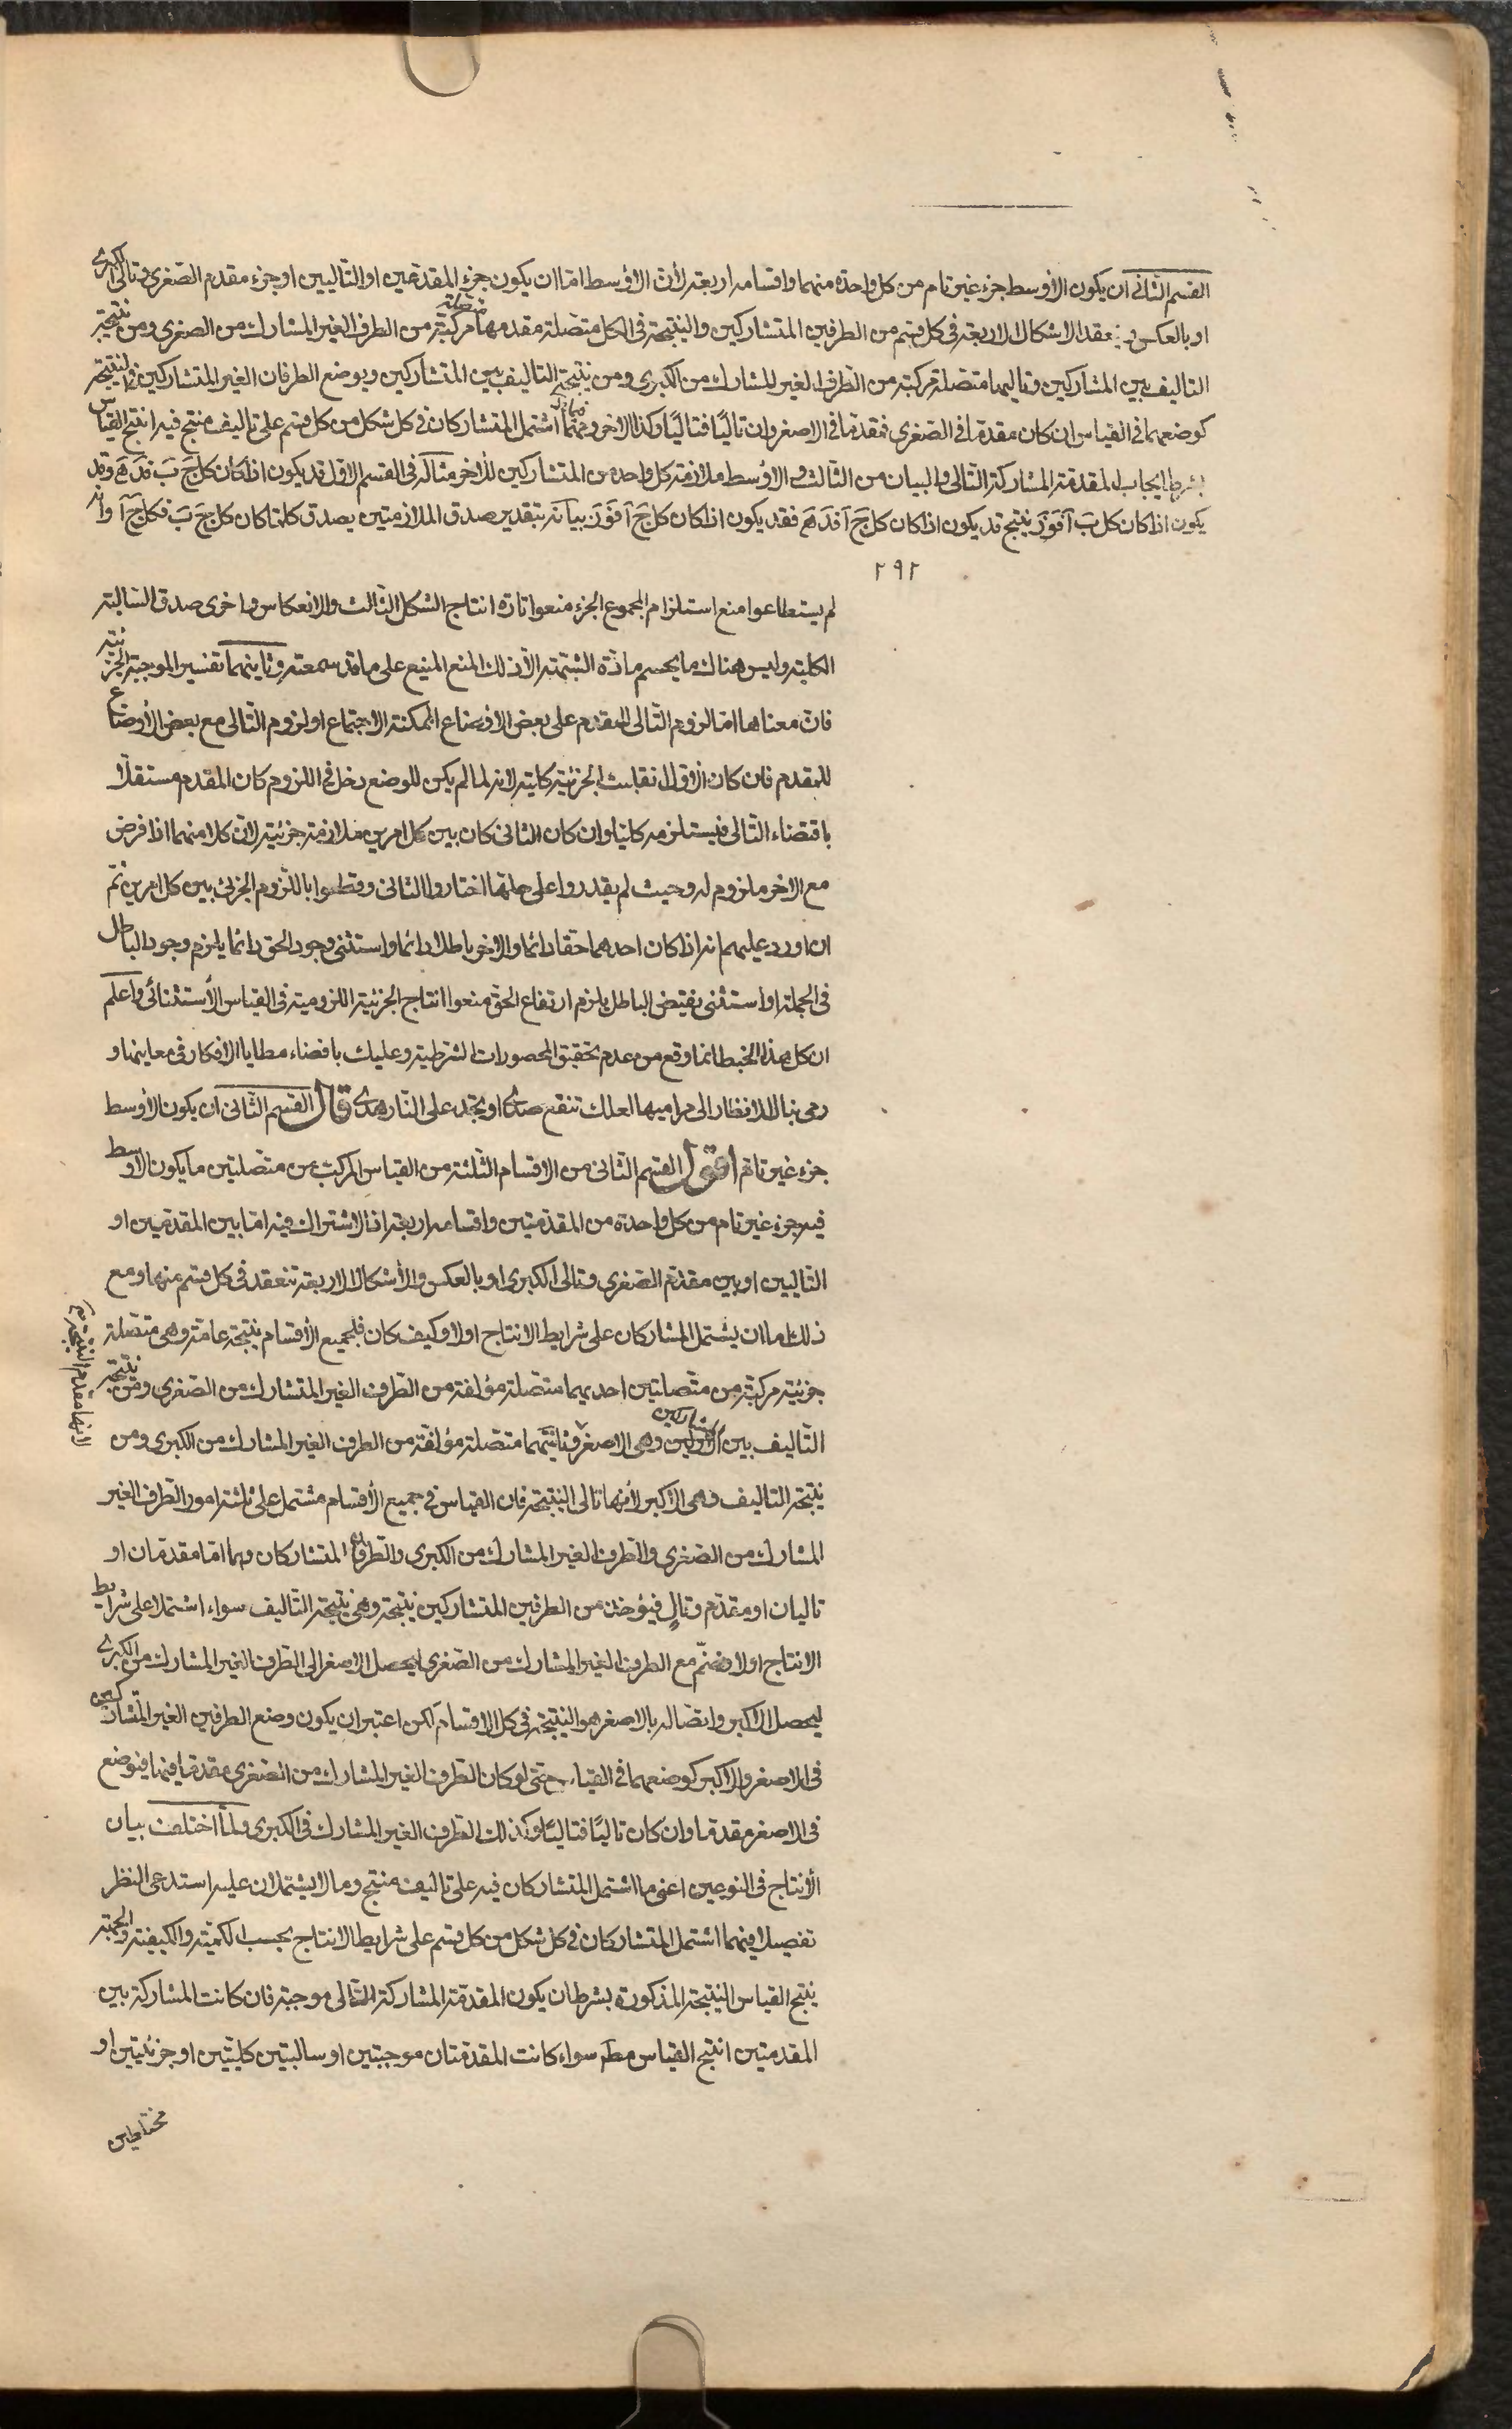 القسم الثانى ان يكون الأوسط جزء غير تام من كل واحدة منهما واقسامه اربعة لأن الأوسط اما ان يكون جزء المقدمين او التاليين او جزء مقدم الصغرى وتالى الكبرى
او بالعكس وينعقد الاشكال الاربعة فى كل قسم من الطرفين المتشاركين والنتيجة فى الكل متصلة مقدمها متصلة مركبة من الطرف الغير المشارك من الصغرى ومن نتيجة
التاليف بين المشاركين وتاليها متصلة مركبة من الطرف الغير المشارك من الكبرى ومن نتيجة التاليف بين المتشاركين ويوضع الطرفان الغير المتشاركين فى النتيجة
كوضعهما فى القياس ان كان مقدما فى الصغرى فمقدما فى الاصغر وان تاليًا فتاليًا وكذا الاخر ومهما اشتمل المتشاركان فى كل شكل من كل قسم على تاليف منتج فيه انتج القياس
بشرط ايجاب المقدمة المشاركة التالى والبيان من الثالث والاوسط ملازمة كل واحد من المتشاركين للأخر مثاله فى القسم الاول قد يكون اذا كان كل ج ب فد ه وقد
يكون اذا كان كل ب آ فو ز ينتج قد يكون اذا كان كل ج آ فد ه فقد يكون اذا كان كل ج آ فو ز بيانه بتقدير صدق الملازمتين يصدق كلما كان كل ج ب فكل ج آ وانه
٢٩٢
لم يستطاعوا منع استلزام المجموع الجزء منعوا تارة انتاج الشكل الثالث والانعكاس واخرى صدق السالبة
الكلية وليس هناك ما يحسم مادة الشبهة الا ذلك المنع المنيع على ما قد سمعته وثانيهما تفسير الموجبة الجزئية
فان معناها اما لزوم التالى للمقدم على بعض الاوضاع الممكنة الاجتماع او لزوم التالى مع بعض الأوضاع
للمقدم فان كان الاول انقلبت الجزئية كلية لانه لما لم يكن للوضع دخل فى اللزوم كان المقدم مستقلا
باقتضاء التالى فيستلزمه كليا وان كان الثانى كان بين كل امرين ملازمة جزئية لان كلا منهما اذا فرض
مع الاخر ملزوم له وحيث لم يقدروا على حلها اختاروا الثانى وقطعوا باللزوم الجزئى بين كل امرين ثم
ان اورد عليهم انه اذا كان احدهما حقا دائما والاخر باطلا دائما واستثنى وجود الحق دائما يلزم وجود الباطل
فى الجملة او استثنى نقيض الباطل يلزم ارتفاع الحق منعوا انتاج الجزئية اللزومية فى القياس الأستثنائى واعلم
ان كل هذا الخبط انما وقع من عدم تحقيق المحصورات الشرطية وعليك بافضاء مطايا الافكار فى معاينها و
رمى نبال الانظار الى مراميها لعلك تنقع صدى او تجد على النار هدى قال القسم الثانى ان يكون الأوسط
جزء غير تام اقول القسم الثانى من الاقسام الثلثة من القياس المركب من متصلتين ما يكون الاوسط
فيه جزء غير تام من كل واحدة من المقدمتين واقسامه اربعة اذ الاشتراك فيه اما بين المقدمين او
التاليين او بين مقدم الصغرى وتالى الكبرى او بالعكس والأشكال الاربعة تنعقد فى كل قسم منها ومع
ذلك اما ان يشتمل المشاركان على شرايط الانتاج اولا وكيف كان فلجميع الأقسام نتيجة عامة وهى متصلة
جزئية مركبة من متصلتين احديهما متصلة مؤلفة من الطرف الغير المتشارك من الصغرى ومن نتيجة
التاليف بين المشاركين وهى الاصغر وثانيتهما متصلة مؤلفة من الطرف الغير المشارك من الكبرى ومن
لانها مقدم النتيجة
نتيجة التاليف وهى الاكبر لأنها تالى النتيجة فان القياس فى جميع الأقسام مشتمل على ثلثة امور الطرف الغير
المشارك من الصغرى والطرف الغير المشارك من الكبرى والطرفان المتشاركان وهما اما مقدمان او
تاليان او مقدم وتالٍ فيؤخذ من الطرفين المتشاركين نتيجة وهى نتيجة التاليف سواء اشتملا على شرايط
الانتاج اولا وتضمّ مع الطرف الغير المشارك من الصغرى ليحصل الاصغر والى الطرف الغير المشارك من الكبرى
ليحصل الاكبر واتصاله بالاصغر هو النتيجة فى كل الاقسام لكن اعتبر ان يكون وضع الطرفين الغير المتشاركين
فى الاصغر والاكبر كوضعهما فى القياس حتى لو كان الطرف الغير المشارك من الصغرى مقدما فيها فيوضع
فى الاصغر مقدما وان كان تاليًا فتاليًا وكذلك الطرف الغير المشارك فى الكبرى ولما اختلف بيان
الأنتاج فى النوعين اعنى ما اشتمل المتشاركان فيه على تاليف منتج وما لا يشتملان عليه استدعى النظر
تفصيلا فيهما اشتمل المتشاركان فى كل شكل من كل قسم على شرايط الانتاج بحسب الكمية والكيفية والجهة
ينتج القياس النتيجة المذكورة بشرط ان يكون المقدمة المشاركة التالى موجبة فان كانت المشاركة بين
المقدمتين انتج القياس مط سواء كانت المقدمتان موجبتين او سالبتين كليتين او جزئيتين او
مختلطين